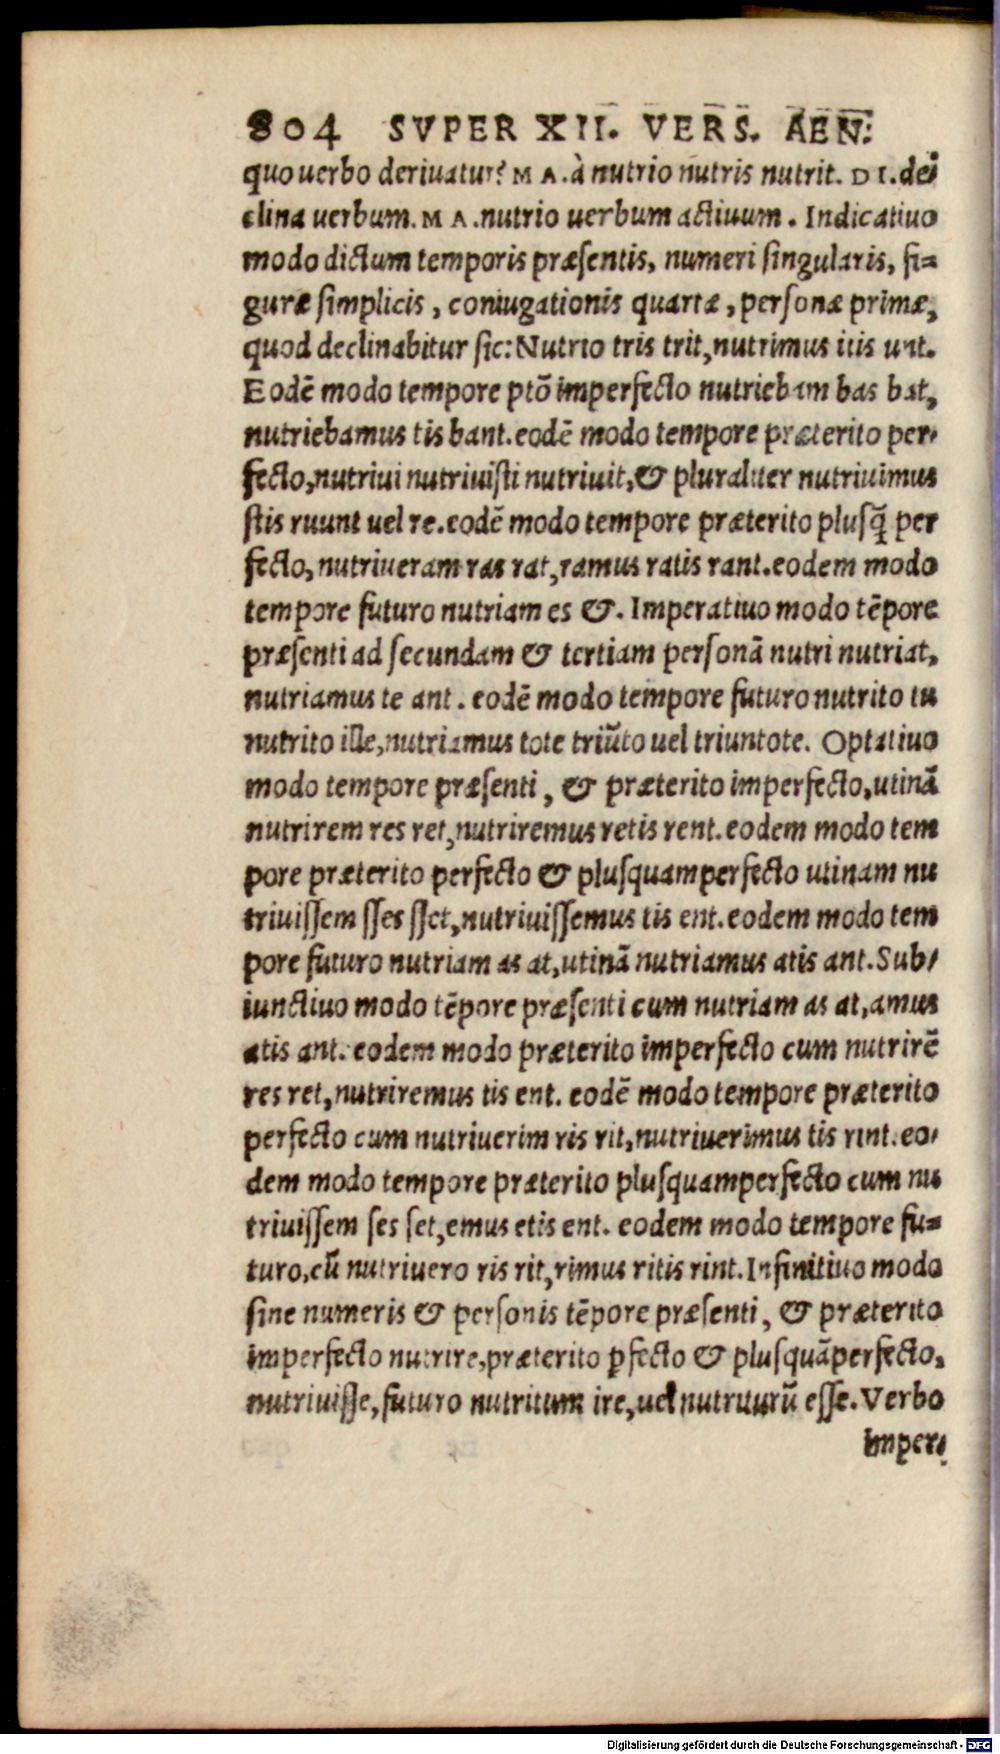 804 SVPER XII. VERS. AEN:
quo uerbo deriuatur? MA. à nutrio nutris nutrit. DI. de
clina uerbum. MA. nutrio uerbum actiuum. Indicatiuo
modo dictum temporis præsentis, numeri singularis, fi=
guræ simplicis, coniugationis quartæ, personæ primæ,
quod declinabitur sic: Nutrio tris trit, nutrimus itis unt.
Eodē modo tempore ptō imperfecto nutriebam bas bat,
nutriebamus tis bant. eodē modo tempore præterito per-
fecto, nutriui nutriuisti nutriuit, & pluraliter nutriuimus
stis ruunt uel re. eodē modo tempore præterito plusq̃ per
fecto, nutriueram ras rat, ramus ratis rant. eodem modo
tempore futuro nutriam es &. Imperatiuo modo tēpore
præsenti ad secundam & tertiam personā nutri nutriat,
nutriamus te ant. eodē modo tempore futuro nutrito tu
nutrito ille, nutriamus tote triūto uel triuntote. Optatiuo
modo tempore præsenti, & præterito imperfecto, utinā
nutrirem res ret, nutriremus retis rent. eodem modo tem
pore præterito perfecto & plusquamperfecto utinam nu
triuissem sses sset, nutriuissemus tis ent. eodem modo tem
pore futuro nutriam as at, utinā nutriamus atis ant. Sub-
iunctiuo modo tēpore præsenti cum nutriam as at, amus
atis ant. eodem modo præterito imperfecto cum nutrirē
res ret, nutriremus tis ent. eodē modo tempore præterito
perfecto cum nutriuerim ris rit, nutriuerimus tis rint. eo-
dem modo tempore præterito plusquamperfecto cum nu
triuissem ses set, emus etis ent. eodem modo tempore fu=
turo, cū nutriuero ris rit, rimus ritis rint. Infinitiuo modo
sine numeris & personis tēpore præsenti, & præterito
imperfecto nutrire, præterito ꝑfecto & plusquāperfecto,
nutriuisse, futuro nutritum ire, uel nutriturū esse. Verbo
imper-
Digitalisierung gefördert durch die Deutsche Forschungsgemeinschaft - DFG